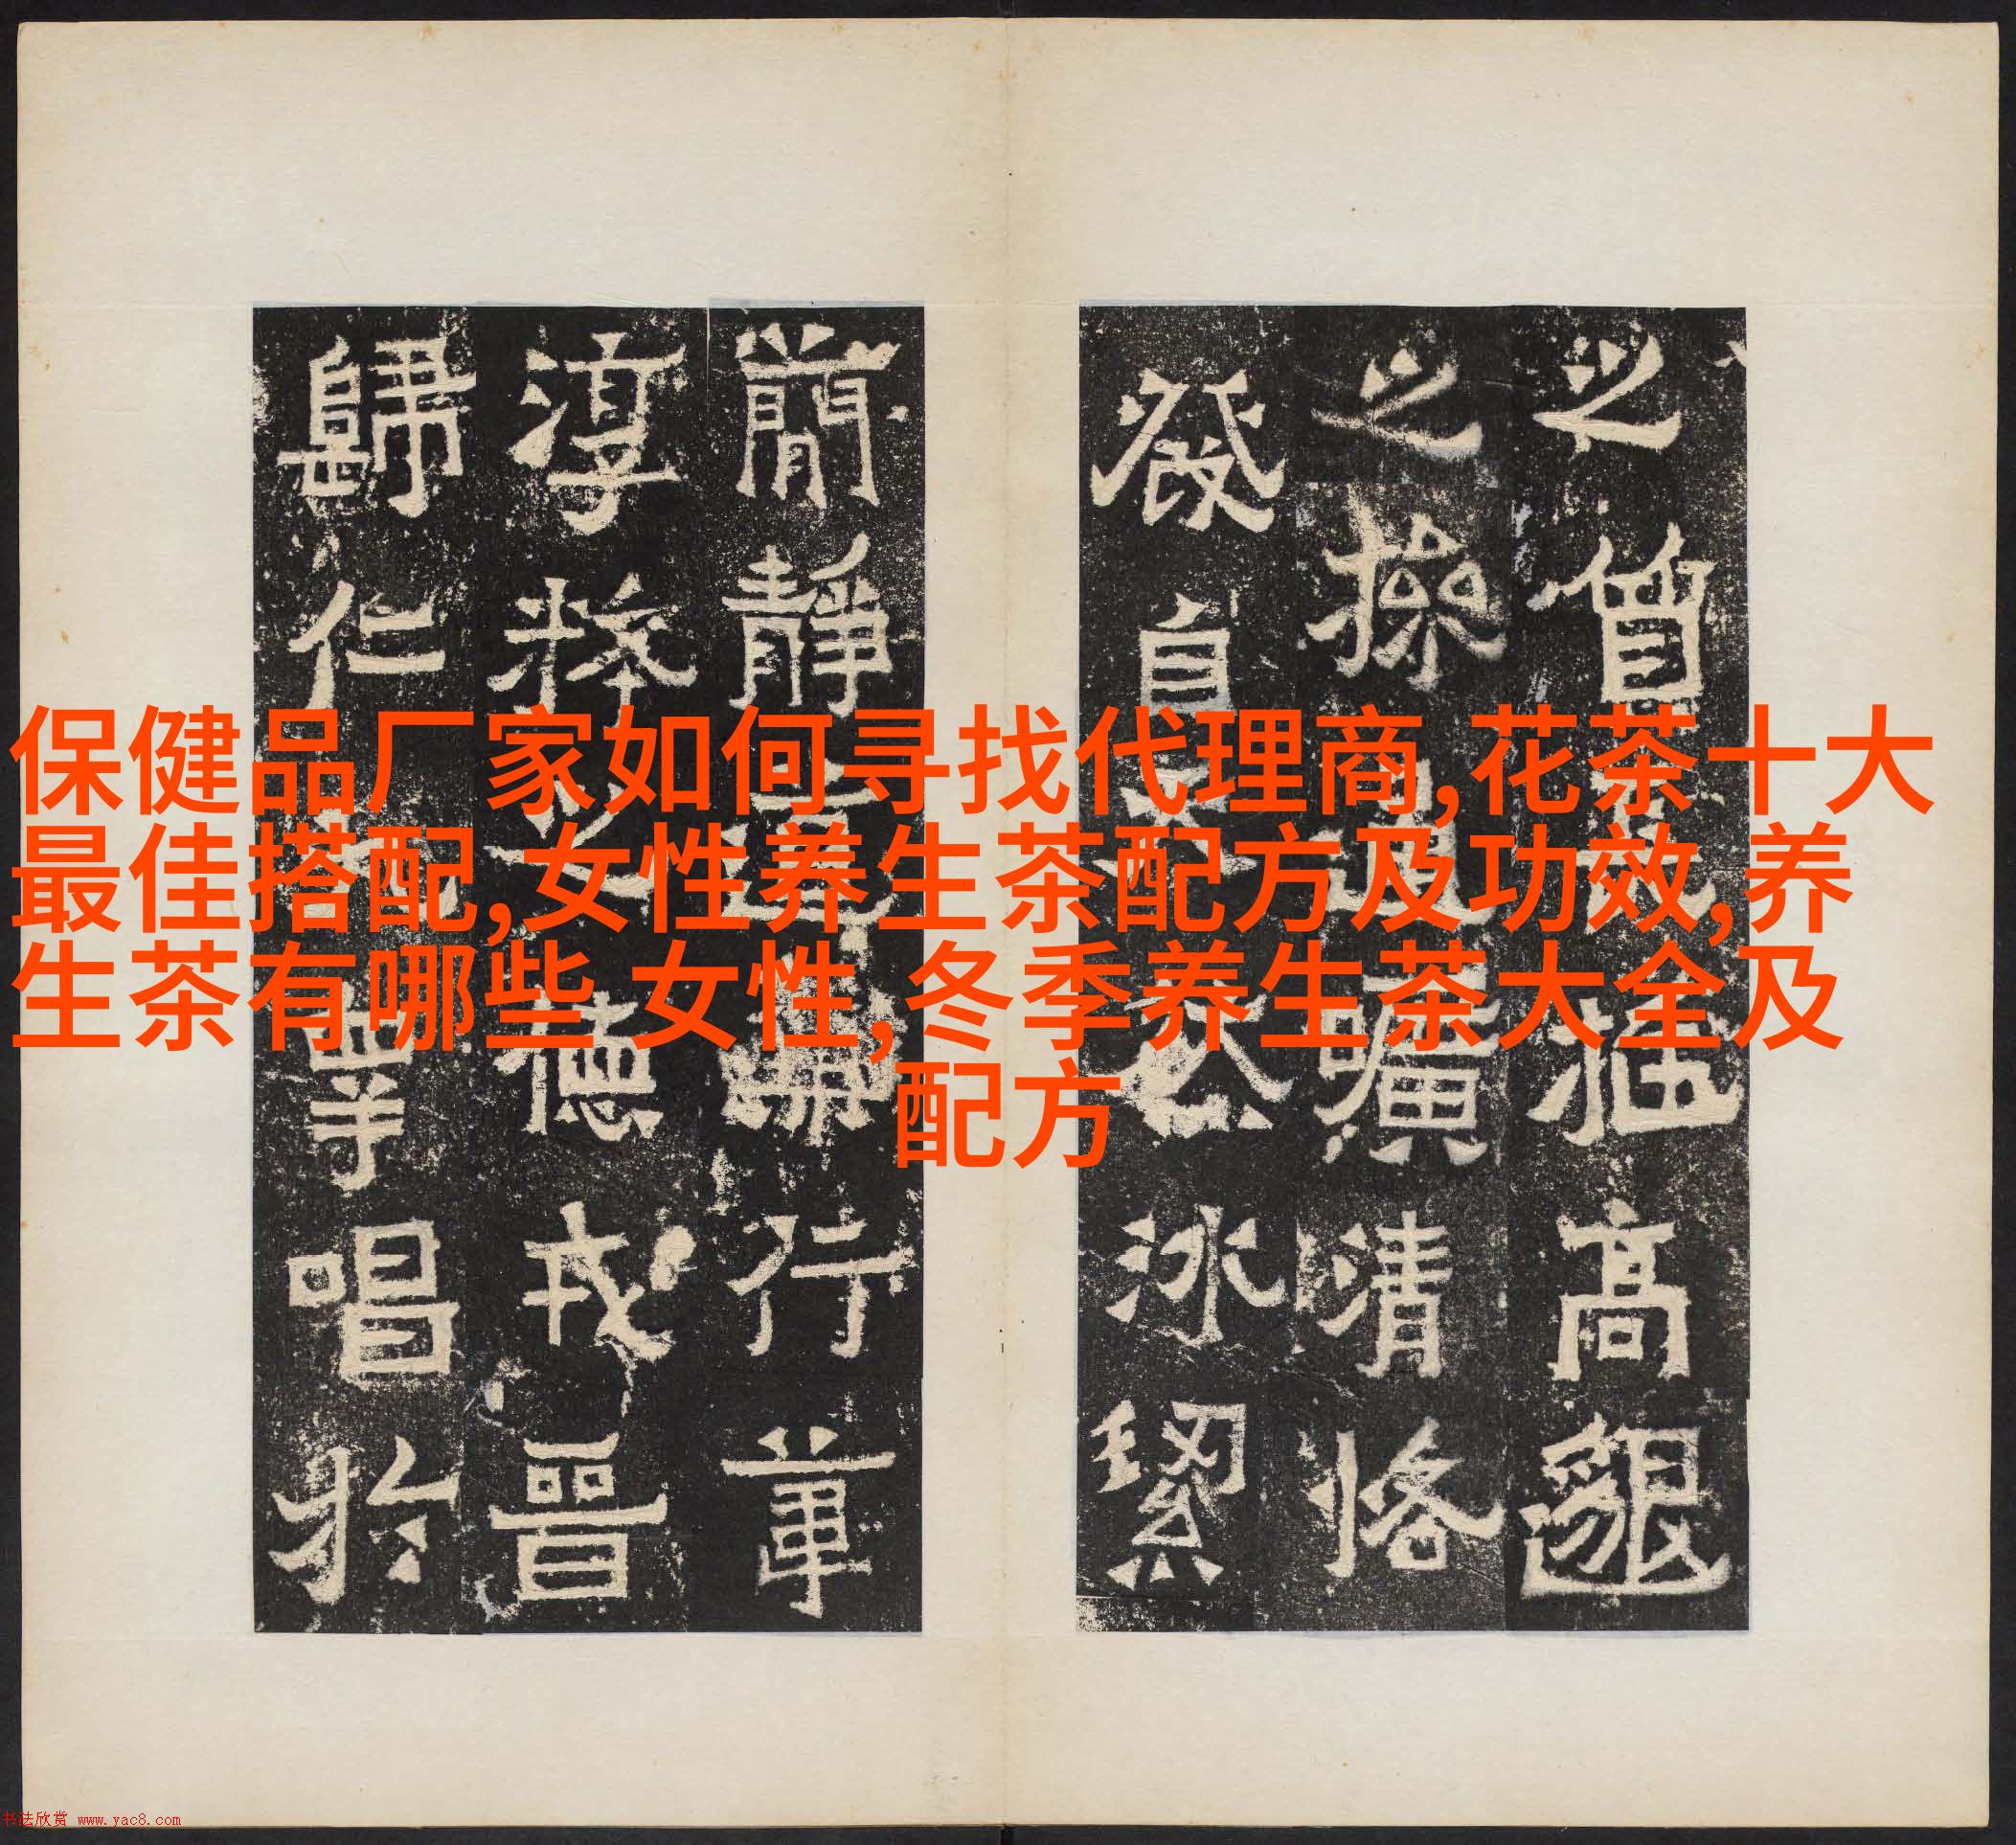 保健品厂家如何寻找代理商,花茶十大
最佳搭配,女性养生茶配方及功效,养
生茶有哪些 女性,冬季养生茶大全及
配方
之曾
高邈
之操
曠清恪
發自
冰絜
簡靜
行葦
淳
德戎晉
歸仁
唱於
书法欣赏 www.yac8.com